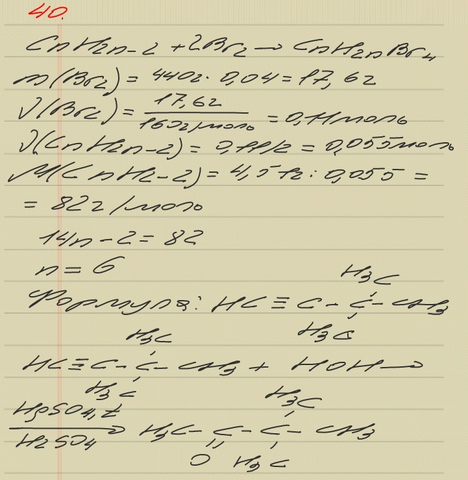 40.
CnH2n-2 + 2Br2 → CnH2nBr4
m(Br2) = 440г · 0,04 = 17,6г
ν(Br2) = 17,6г / 160г/моль = 0,11моль
ν(CnH2n-2) = 0,11/2 = 0,055моль
M(CnH2-2) = 4,51г : 0,055 =
= 82г/моль
14n-2 = 82
n = 6
H3C
Формула: HC ≡ C - C - CH3
H3C H3C
HC≡C - C - CH3 + HOH →
H3C H3C
HgSO4, t
H2SO4 → H3C - C - C - CH3
O H3C